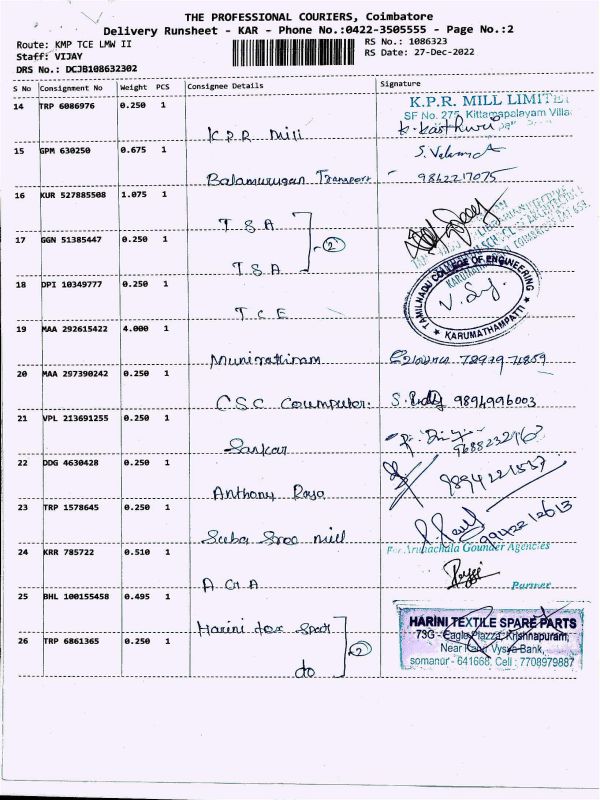 THE PROFESSIONAL COURIERS, Coimbatore
Delivery Runsheet - KAR - Phone No.:0422-3505555 - Page No.:2
Route: KMP TCE LMW II
RS No.: 1086323
Staff: VIJAY
RS Date: 27-Dec-2022
DRS No.: DCJB108632302
S No Consignment No Weight PCS Consignee Details Signature
14 TRP 6086976 0.250 1
K.P.R. MILL LIMITED
SF No. 275, Kittampalayam Villa
K.P.R Mill
15 GPM 630250 0.675 1
Balamurugan Transport
9842217075
16 KUR 527885508 1.075 1
T.S.A
2
17 GGN 51385447 0.250 1
T.S.A
18 DPI 10349777 0.250 1
TAMILNADU COLLEGE OF ENGINEERING
KARUMATHAMPATTI
T C E
19 MAA 292615422 4.000 1
Munirathinam
20 MAA 297390242 0.250 1
CSC Coumputer. 9894996003
21 VPL 213691255 0.250 1
Sankar
22 DDG 4630428 0.250 1
Anthony Raya
23 TRP 1578645 0.250 1
Suba Sree mill
24 KRR 785722 0.510 1
For Arunachala Gounder Agencies
A G A
Partner
25 BHL 100155458 0.495 1
Harini tex Spart
2
HARINI TEXTILE SPARE PARTS
73G - Eagle Plazza, Krishnapuram,
Near Karur Vysya Bank,
somanur - 641668, Cell : 7708979887
26 TRP 6861365 0.250 1
do